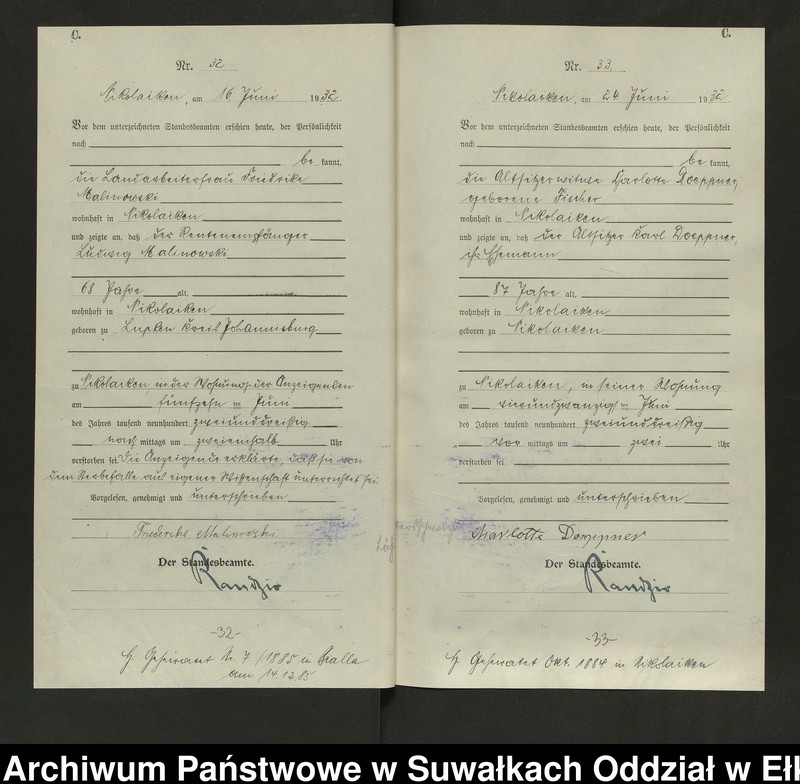 C.
Nr. 32
Nikolaiken, am 16 Juni 1932.
Vor dem unterzeichneten Standesbeamten erschien heute, der Persönlichkeit
nach
be kannt,
die Landarbeiterfrau Friedrike
Malinowski
wohnhaft in Nikolaiken
und zeigte an, daß der Rentenempfänger
Ludwig Malinowski
68 Jahre alt,
wohnhaft in Nikolaiken
geboren zu Lupken Kreis Johannisburg
zu Nikolaiken, in der Wohnung der Anzeigenden
am fünfzehn ten Juni
des Jahres tausend neunhundert zweiunddreißig
nach mittags um zweieinhalb Uhr
verstorben sei. Die Anzeigende erklärte, daß sie von
dem Sterbefalle aus eigener Wissenschaft unterrichtet sei.
Vorgelesen, genehmigt und unterschrieben
Friedricke Malinowski
Der Standesbeamte.
Randzio
-32-
H. Geheiratet N. 7/1885 in
am 14.12.85
C.
Nr. 33.
Nikolaiken, am 24 Juni 1932.
Vor dem unterzeichneten Standesbeamten erschien heute, der Persönlichkeit
nach
be kannt,
die Altsitzerwitwe Charlotte Doeppner,
geborene Fischer
wohnhaft in Nikolaiken
und zeigte an, daß der Altsitzer Karl Doeppner,
ihr Ehemann
87 Jahre alt,
wohnhaft in Nikolaiken
geboren zu Nikolaiken
zu Nikolaiken, in seiner Wohnung
am vierundzwanzigsten Juni
des Jahres tausend neunhundert zweiunddreißig
vor mittags um zwei Uhr
verstorben sei
Vorgelesen, genehmigt und unterschrieben
Charlotte Doeppner
Der Standesbeamte.
Randzio
-33-
H Geheiratet Okt. 1884 in Nikolaiken
Archiwum Państwowe w Suwałkach Oddział w Eł